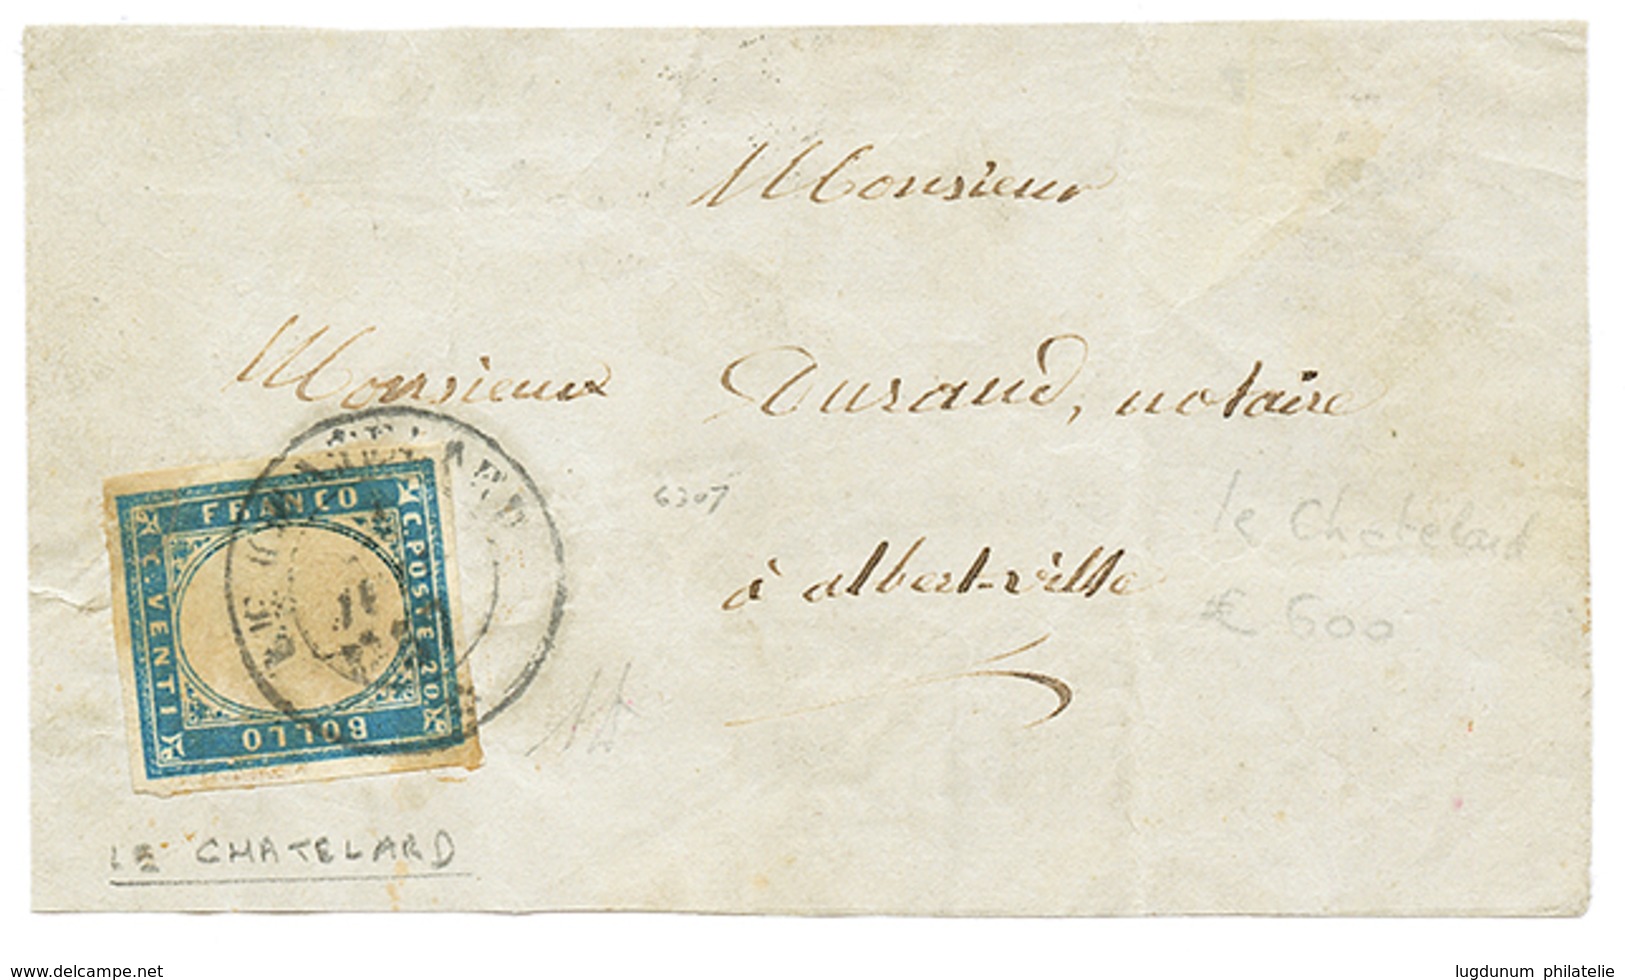 Monsieur
Monsieur Durand, notaire
à albert-ville
6307
le Chatelard
€ 600
LE CHATELARD
FRANCO
C. POSTE 20.
C. VENTI
BOLLO
LE CHATELARD
11
www.delcampe.net
lugdunum philatelie